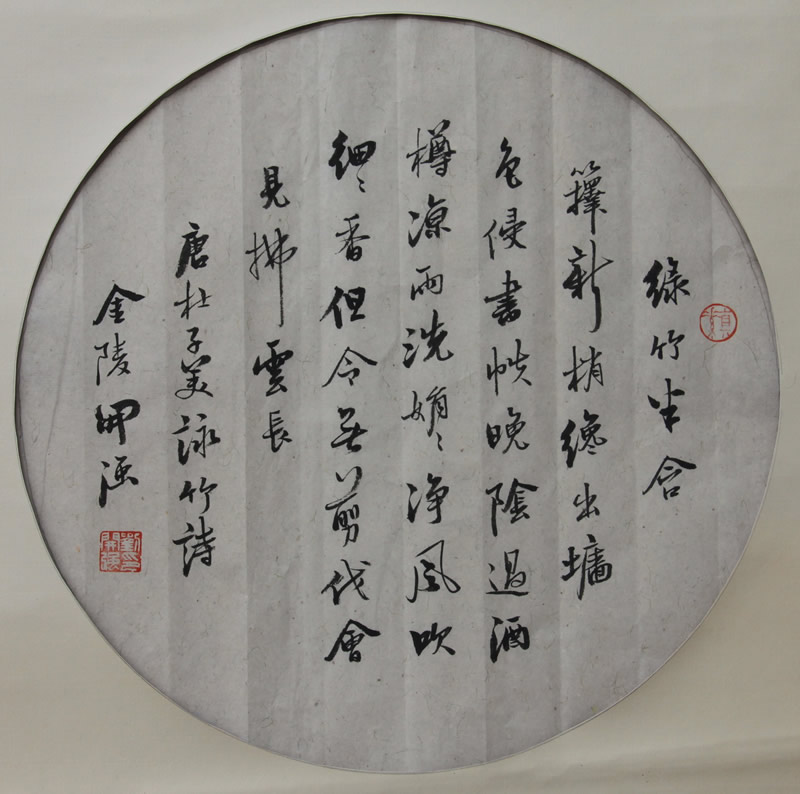 綠竹半含
籜新梢纔出墻
色侵書帙晚陰過酒
樽涼雨洗娟〻净風吹
細〻香但令無剪伐會
見拂雲長
唐杜子美詠竹詩
金陵開强